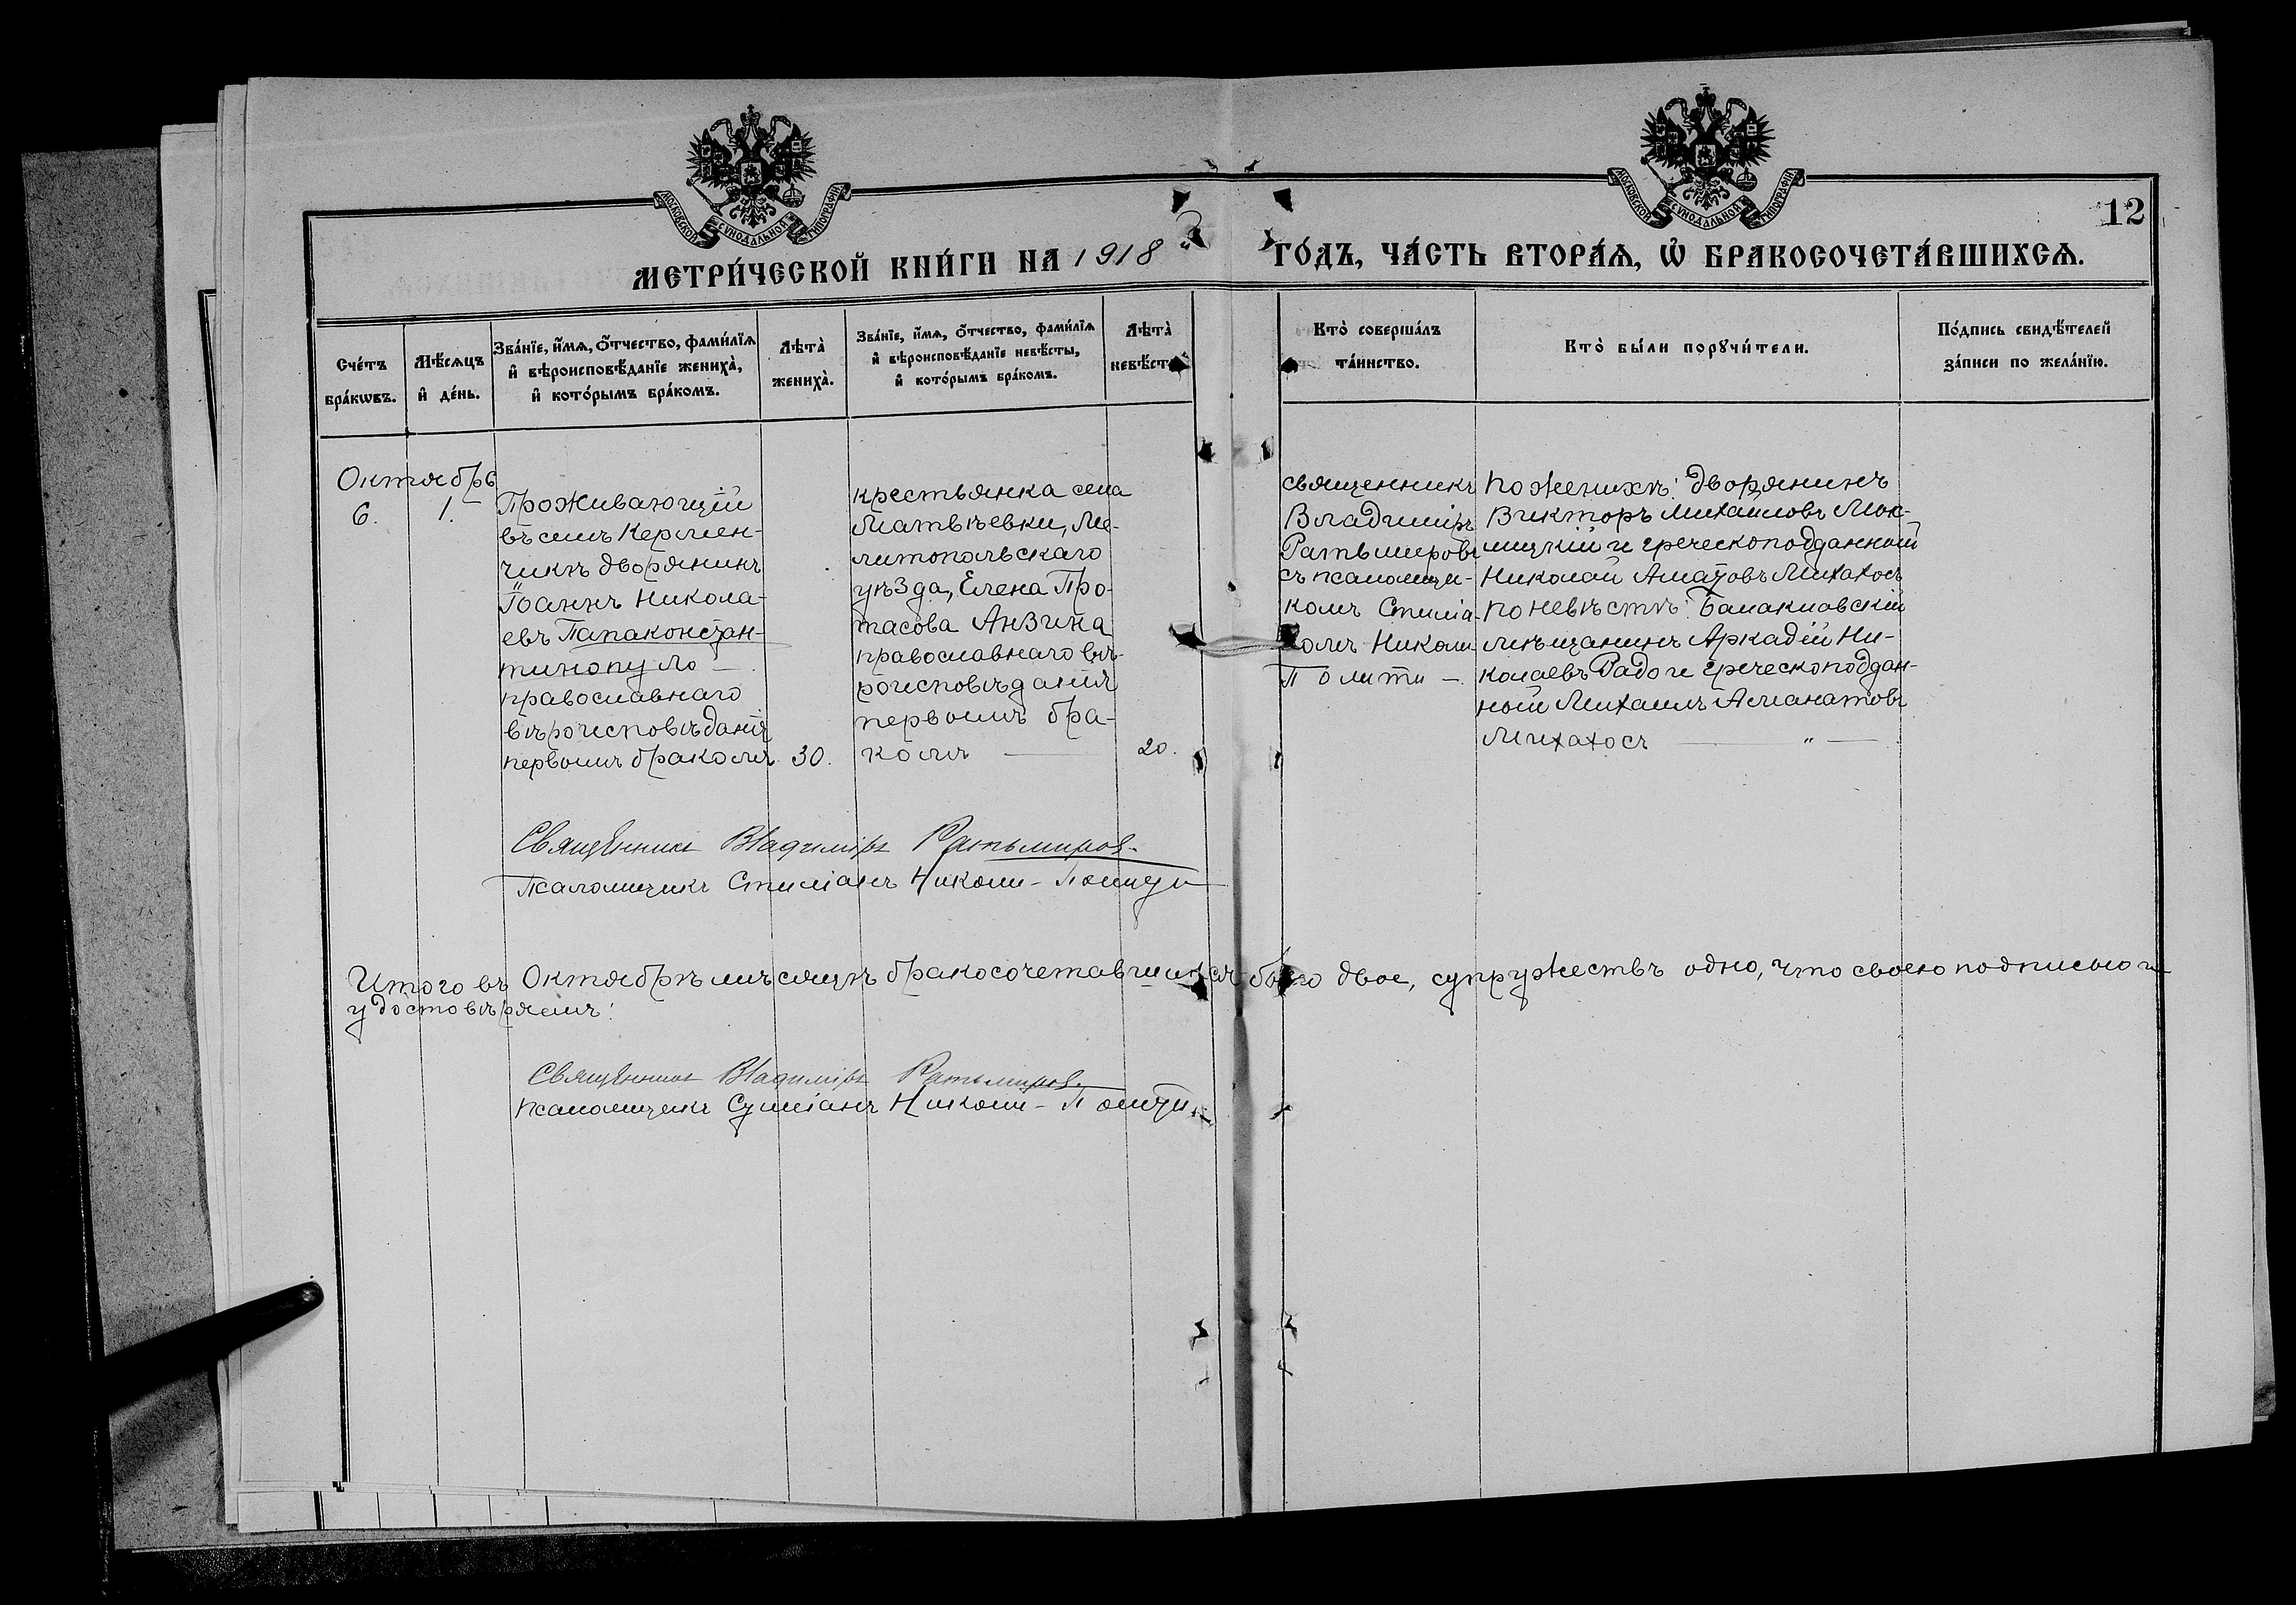 МОСКОВСКОЙ СѴНОДАЛЬНОЙ ТИПОГРАФІИ
МОСКОВСКОЙ СѴНОДАЛЬНОЙ ТИПОГРАФІИ
12
МЕТРИ́ЧЕСКОЙ КНИ́ГИ НА 1918 ГО́ДЪ, ЧА́СТЬ ВТОРА́Ѧ, Ѽ БРАКОСОЧЕТА́ВШИХСѦ.
Сче́тъ бра́кѡвъ.
Мѣ́сяцъ и҆ де́нь.
Зва́нїе, и҆́мѧ, ѻ҆́тчество, фами́лїѧ
и҆ вѣроисповѣ́данїе жениха̀,
и҆ кото́рымъ бра́комъ.
Лѣта̀ жениха̀.
Зва́нїе, и҆́мѧ, ѻ҆́тчество, фами́лїѧ
и҆ вѣроисповѣ́данїе невѣ́сты,
и҆ кото́рымъ бра́комъ.
Лѣта̀ невѣ́сты
Кто̀ соверша́лъ
та́инство.
Кто̀ бы́ли порꙋчи́тели.
По́дпись свидѣ́телей
за́писи по жела́нїю.
Октябрь
6.
1.
Проживающій
въ сел. Кермен-
чикъ дворянинъ
Іоаннъ Никола-
евъ Папаконстан-
тинопуло —
православнаго
вѣроисповѣданія
первымъ бракомъ
30.
крестьянка села
Матвѣевки, Ме-
литопольскаго
уѣзда, Елена Про-
тасова Анзина
православнаго вѣ-
роисповѣданія
первымъ бра-
комъ —
20.
священникъ
Владиміръ
Ратьмировъ
съ псаломщи-
комъ Стиліа-
номъ Николи-
Полити —
По женихѣ: дворянинъ
Викторъ Михаиловъ Мок-
лицкій и греческоподданный
Николай Аматовъ Михахосъ
по невѣстѣ: Балаклавскій
мѣщанинъ Аркадій Ни-
колаевъ Радо и греческоподдан-
ный Михаилъ Асланатовъ
Михахосъ — " —
Священникъ Владиміръ Ратьмиров.
Псаломщикъ Стиліанъ Николи-Полити
Итого въ Октябрѣ мѣсяцѣ бракосочетавшихся было двое, супружествъ одно, что своею подписью и
удостовѣряемъ:
Священникъ Владиміръ Ратьмиров.
Псаломщикъ Стиліанъ Николи-Полити